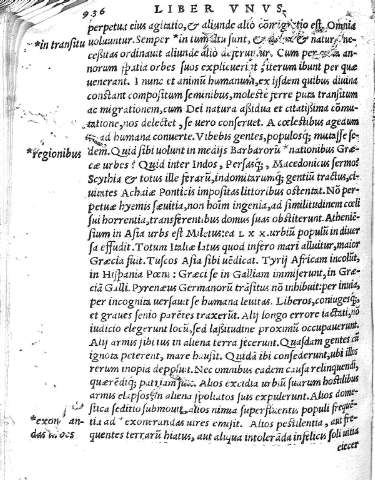 936 LIBER VNVS.
perpetua eius agitatio, & aliunde alio cōmigratio est. Omnia
*in transitu uoluuntur. Semper *in tumultu sunt, & naturę ne-
cessitas ordinauit aliunde alio deferuntur. Cum per an-
norum spatia orbes suos explicuerint iterum ibunt per quę
uenerant. I nunc et animū humanum, ex ijsdem quibus diuina
constant compositum seminibus, moleste ferre puta transitum
ac migrationem, cum Dei natura aßidua et citatißima cōmu-
tatione, uos delectet, se uero conseruet. A cœlestibus agedum
ad humana conuerte. Videbis gentes, populosq; mutasse se-
*regionibus dem. Quid sibi uolunt in medijs Barbarorū *nationibus Græ-
cæ urbes? Quid inter Indos, Persasq; Macedonicus sermo?
Scythia & totus ille ferarū, indomitarumq; gentiū tractus, ci-
uitates Achaiæ Ponticis impositas littoribus ostentat. Nō per-
petuæ hyemis sæuitia, non hoīm ingenia, ad similitudinem cœli
sui horrentia, transferentibus domus suas obstiterunt. Atheniē-
sium in Asia urbs est Miletus: ea LXX. urbiū populū in diuer
sa effudit. Totum Italiæ latus quod infero mari alluitur, maior
Græcia fuit. Tuscos Asia sibi uēdicat. Tyrij Africam incolūt,
in Hispania Pœni: Græci se in Galliam immiserunt, in Græ-
ciā Galli. Pyrenæus Germanorū trāsitus nō inhibuit: per inuia,
per incognita uersauit se humana leuitas. Liberos, coniugesq;
et graues senio parētes traxerūt. Alij longo errore iactati, nō
iudicio elegerunt locū, sed laßitudine proximū occupauerunt.
Alij armis sibi ius in aliena terra fecerunt. Quasdam gentes cū
ignota peterent, mare hausit. Quędā ibi consederunt, ubi illos
rerum inopia deposuit. Nec omnibus eadem causa relinquendi,
quærēdiq; patriam fuit. Alios excidia urbiū suarum hostilibus
armis elapsos in aliena spoliatos suis expulerunt. Alios dome-
stica seditio submouit, alios nimia superfluentis populi frequē-
*exoner an- tia ad *exonerandas uires emisit. Alios pestilentia, aut fre-
das uires quentes terrarū hiatus, aut aliqua intoleranda infelicis soli uitia
eiecer